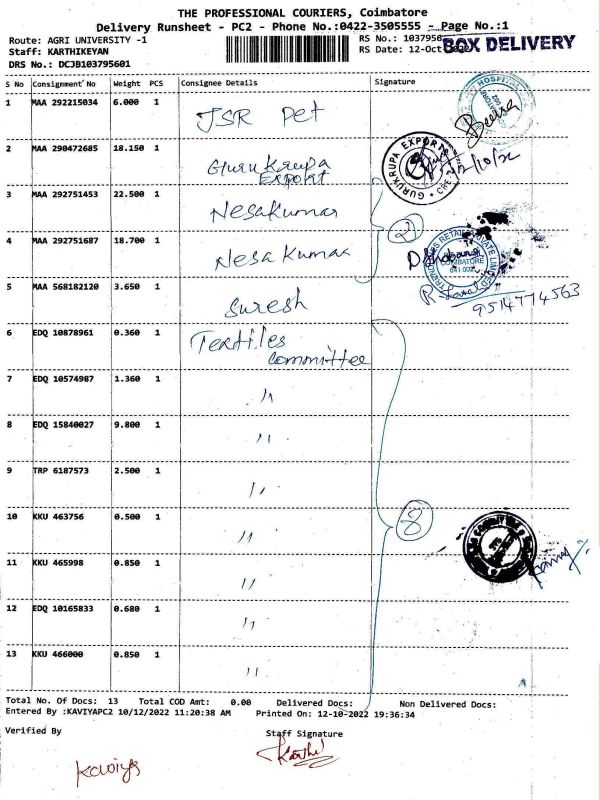 THE PROFESSIONAL COURIERS, Coimbatore
Delivery Runsheet - PC2 - Phone No.:0422-3505555 - Page No.:1
Route: AGRI UNIVERSITY -1
RS No.: 1037956
Staff: KARTHIKEYAN
RS Date: 12-Oct
BOX DELIVERY
DRS No.: DCJB103795601
S No Consignment No Weight PCS Consignee Details Signature
1 MAA 292215034 6.000 1 JSR Pet
2 MAA 290472685 18.150 1 Guru Krupa Export
12/10/22
3 MAA 292751453 22.500 1 Nesakumar
2
4 MAA 292751687 18.700 1 Nesa Kumar
COIMBATORE
641 002
5 MAA 568182120 3.650 1 Suresh
9514774563
6 EDQ 10878961 0.360 1 Textiles committee
7 EDQ 10574987 1.360 1 "
8 EDQ 15840027 9.800 1 "
9 TRP 6187573 2.500 1 "
10 KKU 463756 0.500 1 "
8
11 KKU 465998 0.850 1 "
12 EDQ 10165833 0.680 1 "
13 KKU 466000 0.850 1 "
Total No. Of Docs: 13 Total COD Amt: 0.00 Delivered Docs: Non Delivered Docs:
Entered By :KAVIYAPC2 10/12/2022 11:20:38 AM Printed On: 12-10-2022 19:36:34
Verified By
Staff Signature
Kaviya
Karthi